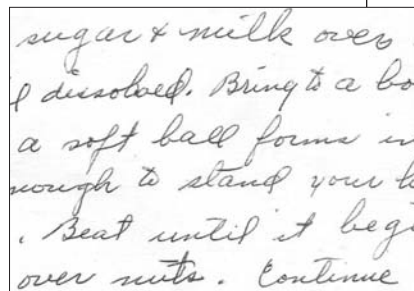 sugar & milk over
l dissolved. Bring to a bo
a soft ball forms in
nough to stand your h
. Beat until it begi
over nuts. Continue